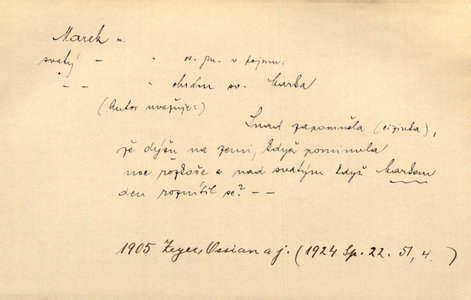 Marek m.
svatý – „ v. m. v pojmu:
– – „ chrám sv. Marka
(Autor uvažuje:)
Snad zapomněla (cizinka),
že dýšu na zemi, když pominula
noc rozkoše a nad svatým když Markem
den roznítil se? – –
1905 Zeyer, Ossian a j. (1924 Sp. 22. 51, 4.)